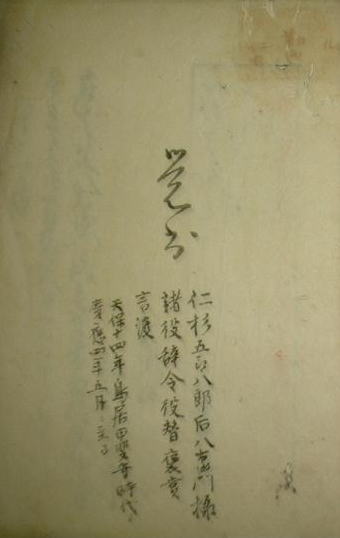 覚書
仁杉五郎八郎后八右衛門様
諸役辞令役替褒賞
言渡
天保十四年鳥居甲斐守時代
慶應四年五月ニ至る